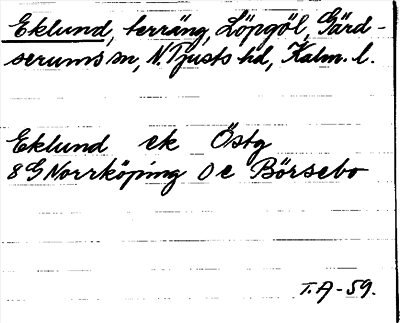 Eklund, terräng, Löpgöl, Gärd-
serums sn, N. Tjusts hd, Kalm. l.
Eklund ek Östg
8 G Norrköping 0 e Börsebo
T.A-59.